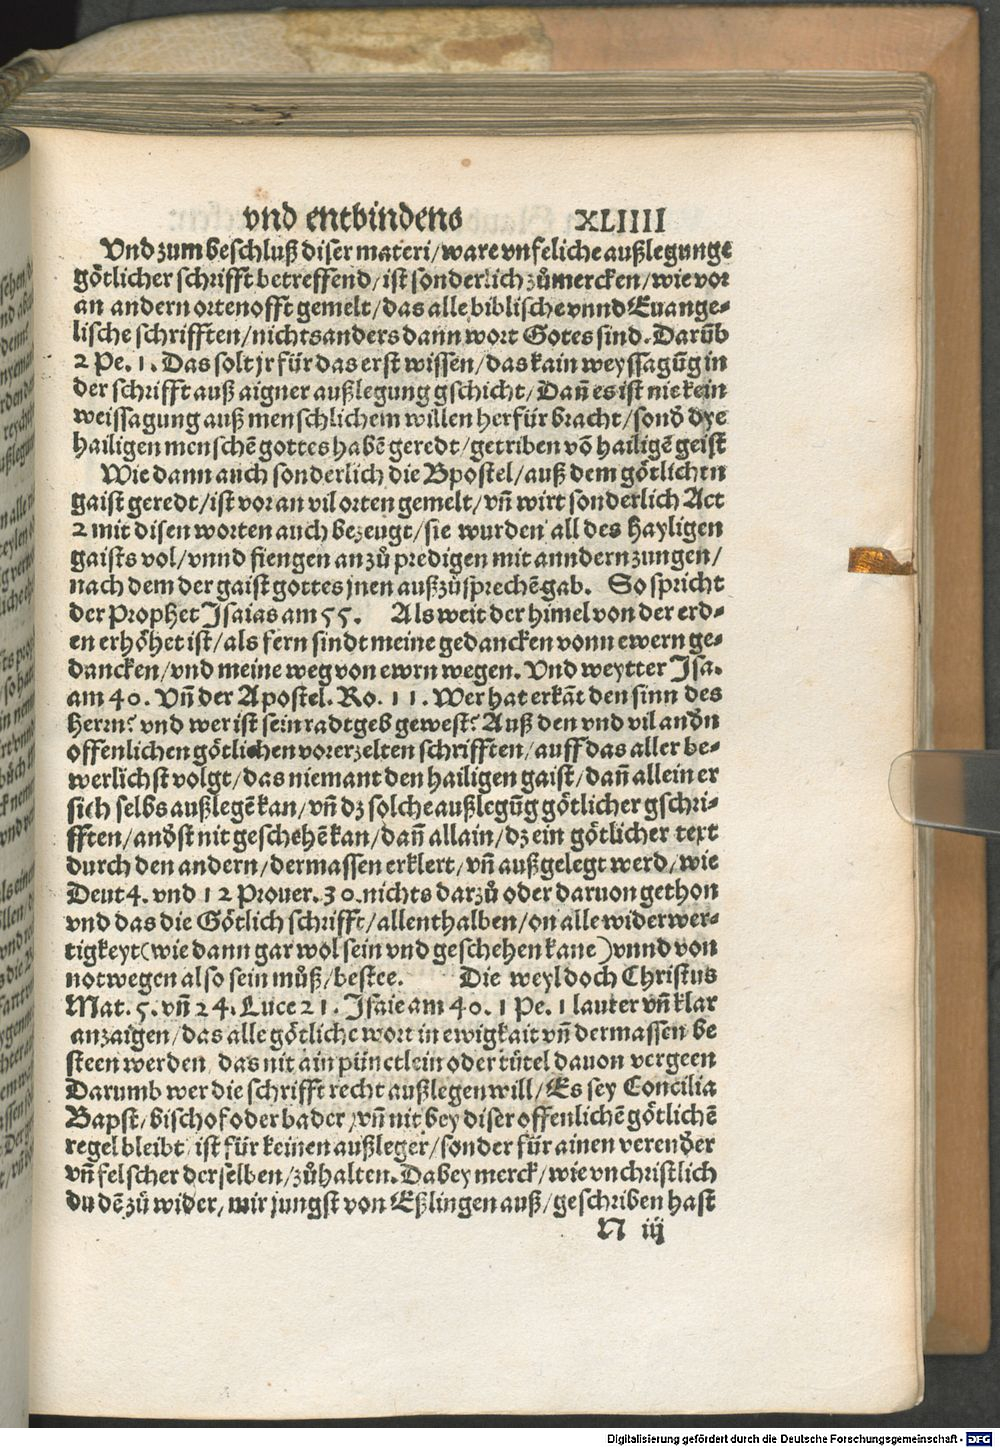 vnd entbindens XLIIII
Vnd zum beschluß diser materi/ ware vnfeliche außlegunge
götlicher schrifft betreffend/ ist sonderlich zůmercken/ wie vor
an andern orten offt gemelt/ das alle biblische vnnd Euange-
lische schrifften/ nichts anders dann wort Gotes sind. Darūb
2 Pe. 1. Das solt jr für das erst wissen/ das kain weyssagūg in
der schrifft auß aigner außlegung gschicht/ Dañ es ist nie kein
weissagung auß menschlichem willen herfür bracht/ sonđ dye
hailigen menschē gottes habē geredt/ getriben vō hailigē geist
Wie dann auch sonderlich die Bpostel/ auß dem götlichen
gaist geredt/ ist vor an vil orten gemelt/ vñ wirt sonderlich Act
2 mit disen worten auch bezeugt/ sie wurden all des hayligen
gaists vol/ vnnd fiengen an zů predigen mit anndern zungen/
nach dem der gaist gottes jnen außzůsprechē gab. So spricht
der Prophet Jsaias am 55. Als weit der himel von der erd-
en erhöhet ist/ als fern sindt meine gedancken vonn ewern ge-
dancken/ vnd meine weg von ewrn wegen. Vnd weytter Jsa.
am 40. Vñ der Apostel. Ro. 11. Wer hat erkāt den sinn des
Herrn? vnd wer ist sein radtgeb gewest? Auß den vnd vil andn
offenlichen götlichen vorerzelten schrifften/ auff das aller be-
werlichst volgt/ das niemant den hailigen gaist/ dañ allein er
sich selbs außlegē kan/ vñ dz solche außlegūg götlicher gschri-
fften/ anđst nit geschehē kan/ dañ allain/ dz ein götlicher text
durch den andern/ dermassen erklert/ vñ außgelegt werd/ wie
Deut 4. vnd 12 Prouer. 30. nichts darzů oder daruon gethon
vnd das die Götlich schrifft/ allenthalben/ on alle widerwer-
tigkeyt (wie dann gar wol sein vnd geschehen kane) vnnd von
notwegen also sein můß/ bestee. Die weyl doch Christus
Mat. 5. vñ 24. Luce 21. Jsaie am 40. 1 Pe. 1 lauter vñ klar
anzaigen/ das alle götliche wort in ewigkait vñ dermassen be
steen werden das nit ain pünctlein oder tütel dauon vergeen
Darumb wer die schrifft recht außlegen will/ Es sey Concilia
Bapst/ bischof oder bader/ vñ nit bey diser offenlichē götlichē
regel bleibt/ ist für keinen außleger/ sonder für ainen verenđer
vñ felscher derselben/ zůhalten. Dabey merck/ wie vnchristlich
du dē zů wider/ mir jungst von Eßlingen auß/ geschriben hast
N iij
Digitalisierung gefördert durch die Deutsche Forschungsgemeinschaft - DFG